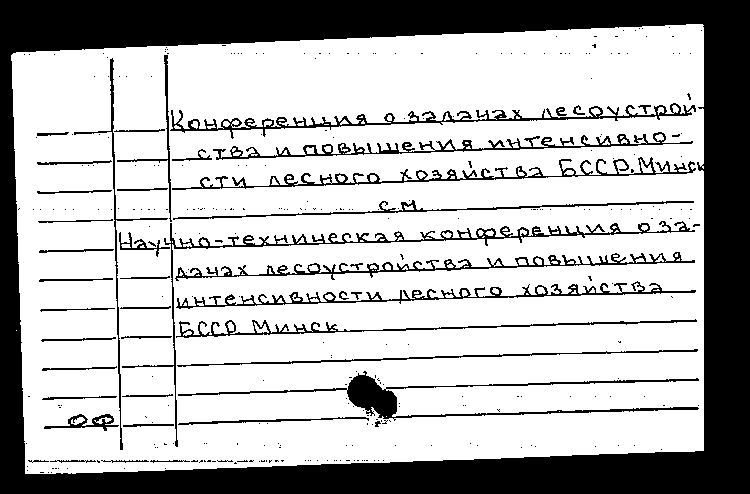 Конференция о задачах лесоустрой-
ства и повышения интенсивно-
сти лесного хозяйства БССР. Минск
см.
Научно-техническая конференция о за-
дачах лесоустройства и повышения
интенсивности лесного хозяйства
БССР. Минск.
ОФ